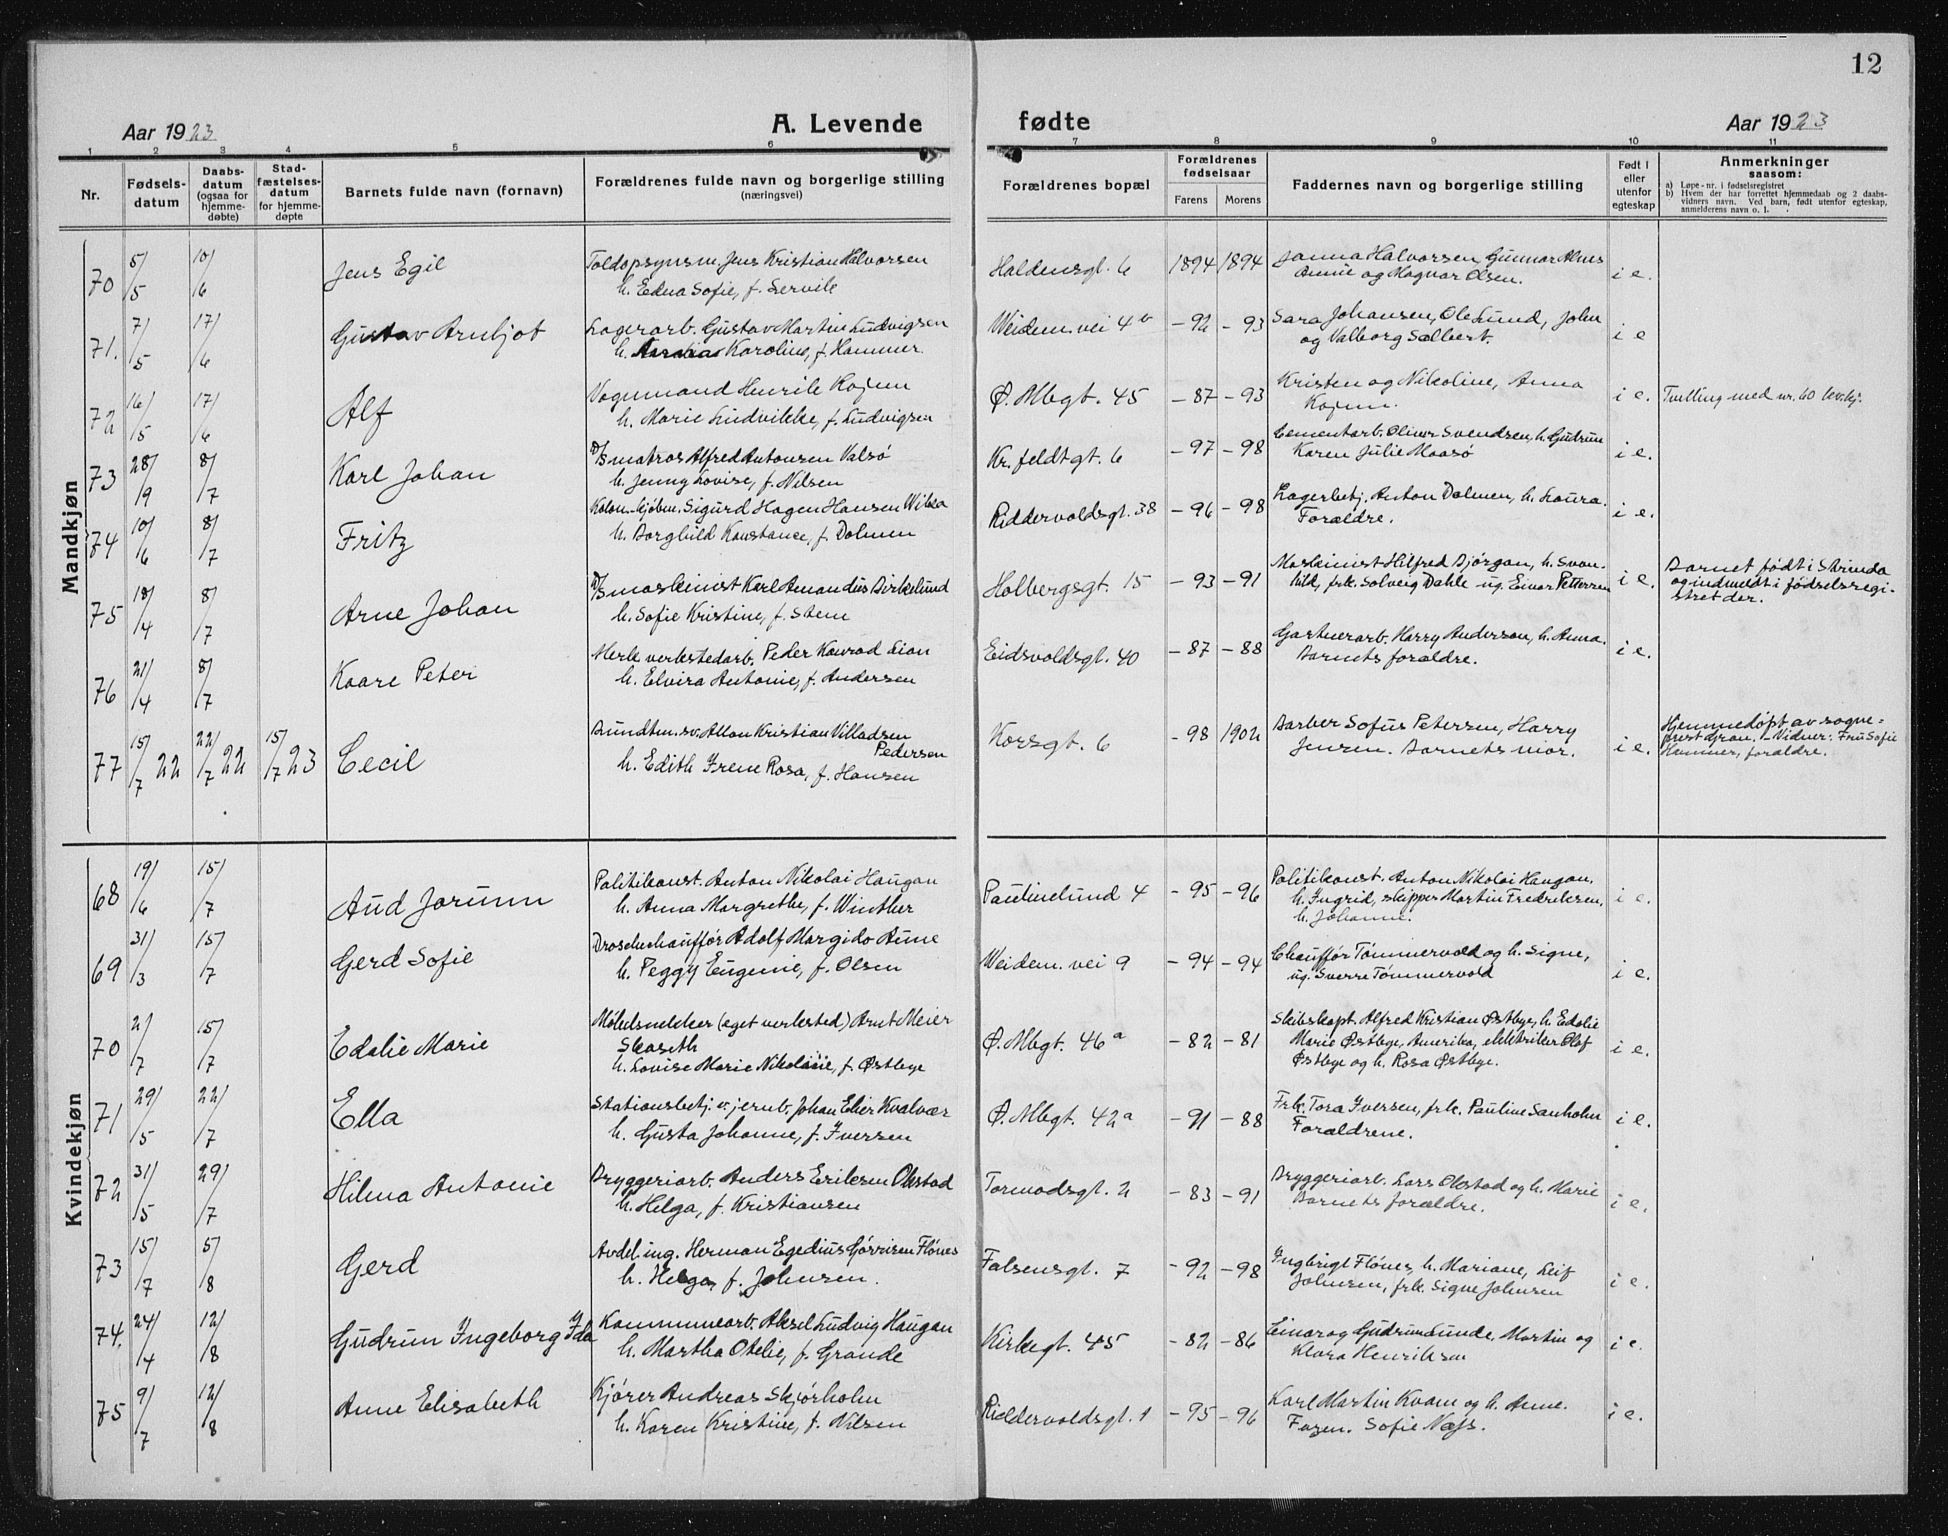 12
Aar 1923
A. Levende
fødte
Aar 1923
1 2 3 4 5 6 7 8 9 10 11
Nr.
Fødsels-
datum
Daabs-
datum
(ogsaa for
hjemme-
døbte)
Stad-
fæstelses-
datum
for hjemme-
døpte
Barnets fulde navn (fornavn)
Forældrenes fulde navn og borgerlige stilling
(næringsvei)
Forældrenes bopæl
Forældrenes
fødselsaar
Farens
Morens
Faddernes navn og borgerlige stilling
Født i
eller
utenfor
egteskap
Anmerkninger
saasom:
a) Løpe-nr. i fødselsregistret
b) Hvem der har forrettet hjemmedaab og 2 daabs-
vidners navn. Ved barn, født utenfor egteskap,
anmelderens navn o. l.
Mandkjøn
70 5/5 10/6 Jens Egil
Toldopsynsm. Jens Kristian Halvorsen
h. Edna Sofie, f. Servik
Haldensgt. 6 1894 1894
Janna Halvorsen, Gunnar Alnes
Annie og Magnar Olsen.
i e.
71. 7/5 17/6 Gustav Arnljot
Lagerarb. Gustav Martin Ludvigsen
h. Karoline, f. Hammer.
Weidem. vei 4b - 92 - 93
Sara Johansen, Ole Lund, John
og Valborg Solbert.
i e
72 16/5 17/6 Alf
Vognmand Henrik Kojen
h. Marie Ludvikke, f. Ludvigsen
Ø. Mbgt. 45 - 87 - 93
Kristen og Nikoline, Anna
Kojen.
i e. Tvilling med nr. 60 kv.kj.
73 28/9 8/7 Karl Johan
D/S matros Alfred Antonsen Valsø
h. Jenny Lovise, f. Nilsen
Kr. feldtgt. 6 - 97 - 98
Cementarb. Oliver Svendsen, h. Gudrun
Karen Julie Maasø
i e.
74 10/6 8/7 Fritz
Kolon. kjøbm. Sigurd Hagen Hansen
h. Borghild Konstance, f. Dolmen
Riddervoldsgt. 38 - 96 - 98
Lagerbetj. Anton Dolmen, h. Laura.
Forældre.
i e.
75 18/4 8/7 Arne Johan
D/S maskinist Karl Amandus Birkelund
h. Sofie Kristine, f. Stene
Holbergsgt. 15 - 93 - 91
Maskinist Hilfred Bjørgan, h. Svan-
hild, frk. Solveig Dahle ug. Einar Pettersen
i e. Barnet født i Strinda
og indmeldt i fødselsregi-
stret der.
76 21/4 8/7 Kaare Peter
Mek. verkstedarb. Peder Konrad Lian
h. Elvira Antonie, f. Andersen
Eidsvoldsgt. 40 - 87 - 88
Gartnerarb. Harry Anderson, h. Anna.
Barnets forældre.
i e.
77 15/7 22 22/7 22 15/7 23 Cecil
Bundtm. sv. Allan Kristian Villadsen
Pedersen
h. Edith Irene Rosa, f. Hansen
Korsgt. 6 - 98 1902
Barber Sofus Petersen, Harry
Jensen. Barnets mor.
i e. Hjemmedøpt av sogne-
prest Gran. Vidner: Fru Sofie
Hemmer, forældre.
Kvindekjøn
68 19/6 15/7 Aud Jorunn
Politikonst. Anton Nikolai Haugan
h. Anna Margrethe, f. Winther
Paulinelund 4 - 95 - 96
Politikonst. Anton Nikolai Haugan,
h. Ingrid, skipper Martin Fredriksen,
h. Johanne.
i e.
69 31/3 15/7 Gerd Sofie
Droschechauffør Adolf Margido Aune
h. Peggy Eugenie, f. Olsen
Weidem. vei 9 - 94 - 94
Chauffør Tømmervold og h. Signe,
ug. Sverre Tømmervold
i e.
70 2/7 15/7 Edalie Marie
Møbelsnekker (eget verksted) Arnt Meier
Skaseth
h. Lovise Marie Nikoline, f. Østbye
Ø. Mbgt. 46a - 82 - 81
Skibskapt. Alfred Kristian Østbye, h. Edalie
Marie Østbye, Amerika, elektriker Olaf
Østbye og h. Rosa Østbye.
i e.
71 29/5 22/7 Ella
Stationsbetj. v. jernb. Johan Elier Kvalvær
h. Gusta Johanne, f. Iversen
Ø. Mbgt. 42a - 91 - 88
Frk. Tora Iversen, frk. Pauline Sanholm
Forældrene.
i e.
72 31/5 29/7 Hilma Antonie
Bryggeriarb. Anders Eriksen Okstad
h. Helga, f. Kristiansen
Tormodsgt. 2 - 83 - 91
Bryggeriarb. Lars Okstad og h. Marie
Barnets forældre.
i e.
73 15/7 5/8 Gerd
Avdel. ing. Herman Egedius Flönes
h. Helga, f. Johnsen.
Falsensgt. 7 - 92 - 98
Ingbrigt Flönes, h. Mariane, Leif
Johnsen, frk. Signe Johnsen
i e.
74. 24/4 12/8 Gudrun Ingeborg Ida
Kommunearb. Aksel Ludvig Haugan
h. Martha Otelie, f. Grande
Kirkegt. 45 - 82 - 86
Einar og Gudrun Lunde, Martin og
Klara Henriksen
i e.
75 9/7 12/8 Anne Elisabeth
Kjører Andreas Skjørholm
h. Karen Kristine, f. Nilsen
Riddervoldsgt. 1 - 95 - 96
Karl Martin Kvam og h. Anne.
Faren. Sofie Næss.
i e.